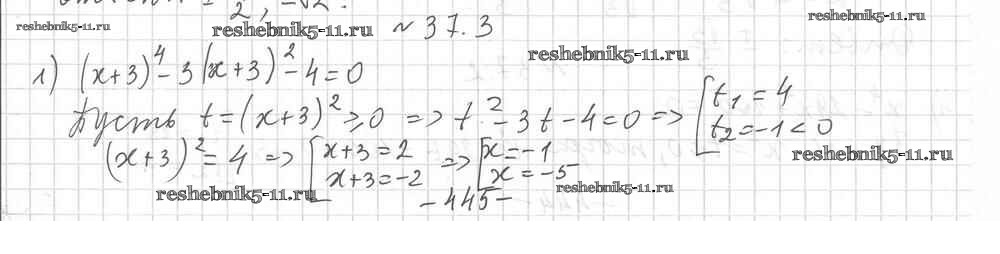 2 ; -√2.
reshebnik5-11.ru reshebnik5-11.ru № 37.3 reshebnik5-11.ru
reshebnik5-11.ru
1) (x+3)⁴ - 3(x+3)² - 4 = 0
Пусть t = (x+3)² ≥ 0 => t² - 3t - 4 = 0 => [ t₁ = 4
t₂ = -1 < 0
reshebnik5-11.ru
(x+3)² = 4 => [ x+3 = 2 => [ x = -1
x+3 = -2 x = -5
reshebnik5-11.ru reshebnik5-11.ru
- 445 -